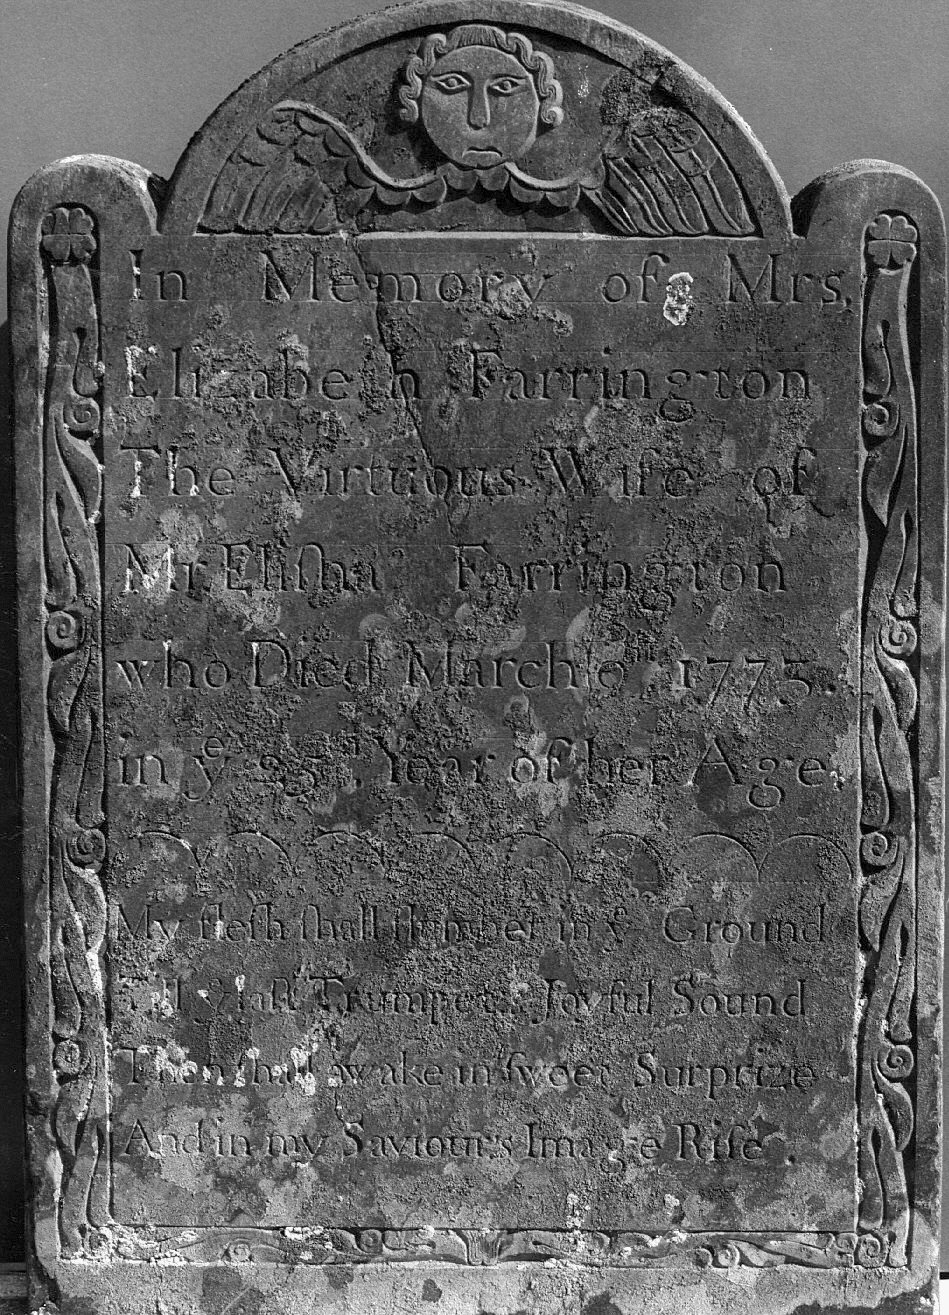 In Memory of Mrs,
Elizabeth Farrington
The Virtuous Wife of
Mr Eliſha Farrington
who Died March 6th 1775.
in ye Year of her Age
My fleſh ſhall ſlumber in ye Ground
Till ye laſt Trumpets Joyful Sound
Then ſhall awake in ſweet Surprize
And in my Saviour's Image Riſe.